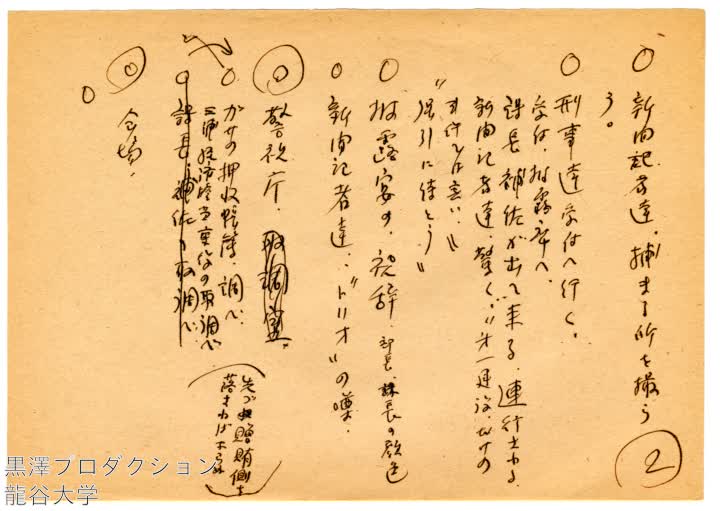 ②
○ 新聞記者達、捕まる所を撮う
う。
○ 刑事達受付へ行く。
受付、披露宴へ、
課長補佐が出て来る 連行される
新聞記者達、驚く、〃才一建設だけの
事件では無い、〃
〃強引に待とう〃
○ 披露宴の、祝辞、部長、課長の顔色
○ 新聞記者達、〃トリオ〃の噂、
◎ 警視庁、取調室、
○ ガサの押収帳簿、調べ、
三浦経理担当重役の取調べ
○ 課長補佐の取調べ、
(先づ贈賄側を
落さねばならぬ)
◎ 会場、
○
黒澤プロダクション
龍谷大学